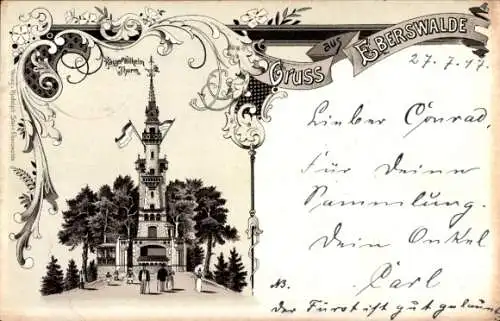 Kaiser Wilhelm
Thurm
Gruss aus Eberswalde
27. 7. 17.
Lieber Conrad,
Für Deine
Sammlung.
Dein Onkel
Carl
NB.
Der Fürst ist gut